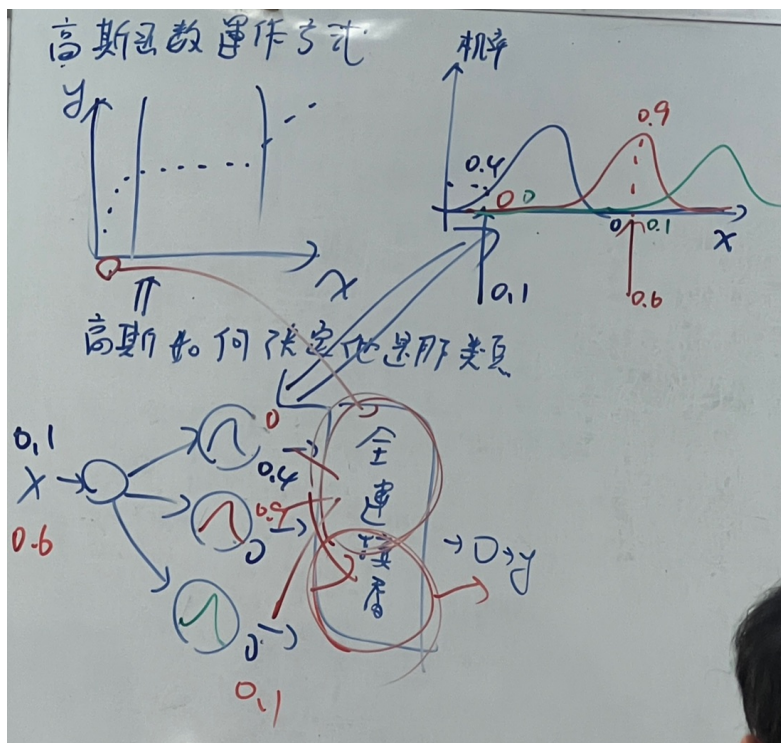 高斯函数運作方式
y
x
机率
0.4
0.9
0
0
0
0.1
x
0.1
0.6
高斯如何決定他是那類
0.1
x
0.6
0
0.4
0.9
0
0
0.1
全連接層
y